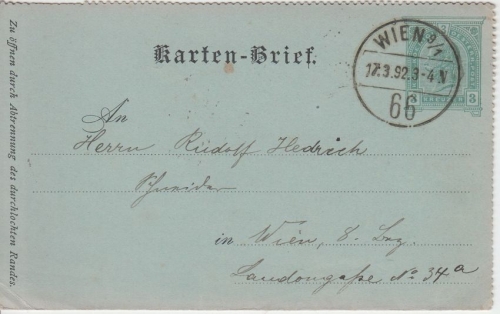 Zu öffnen durch Abtrennung des durchlochten Randes.
Karten-Brief.
WIEN 9/1
17.3.92.3-4.N
66
3
An
Herrn Rudolf Hedrich
Schneider
in Wien, 8. Bez.
Laudongaße No 34a